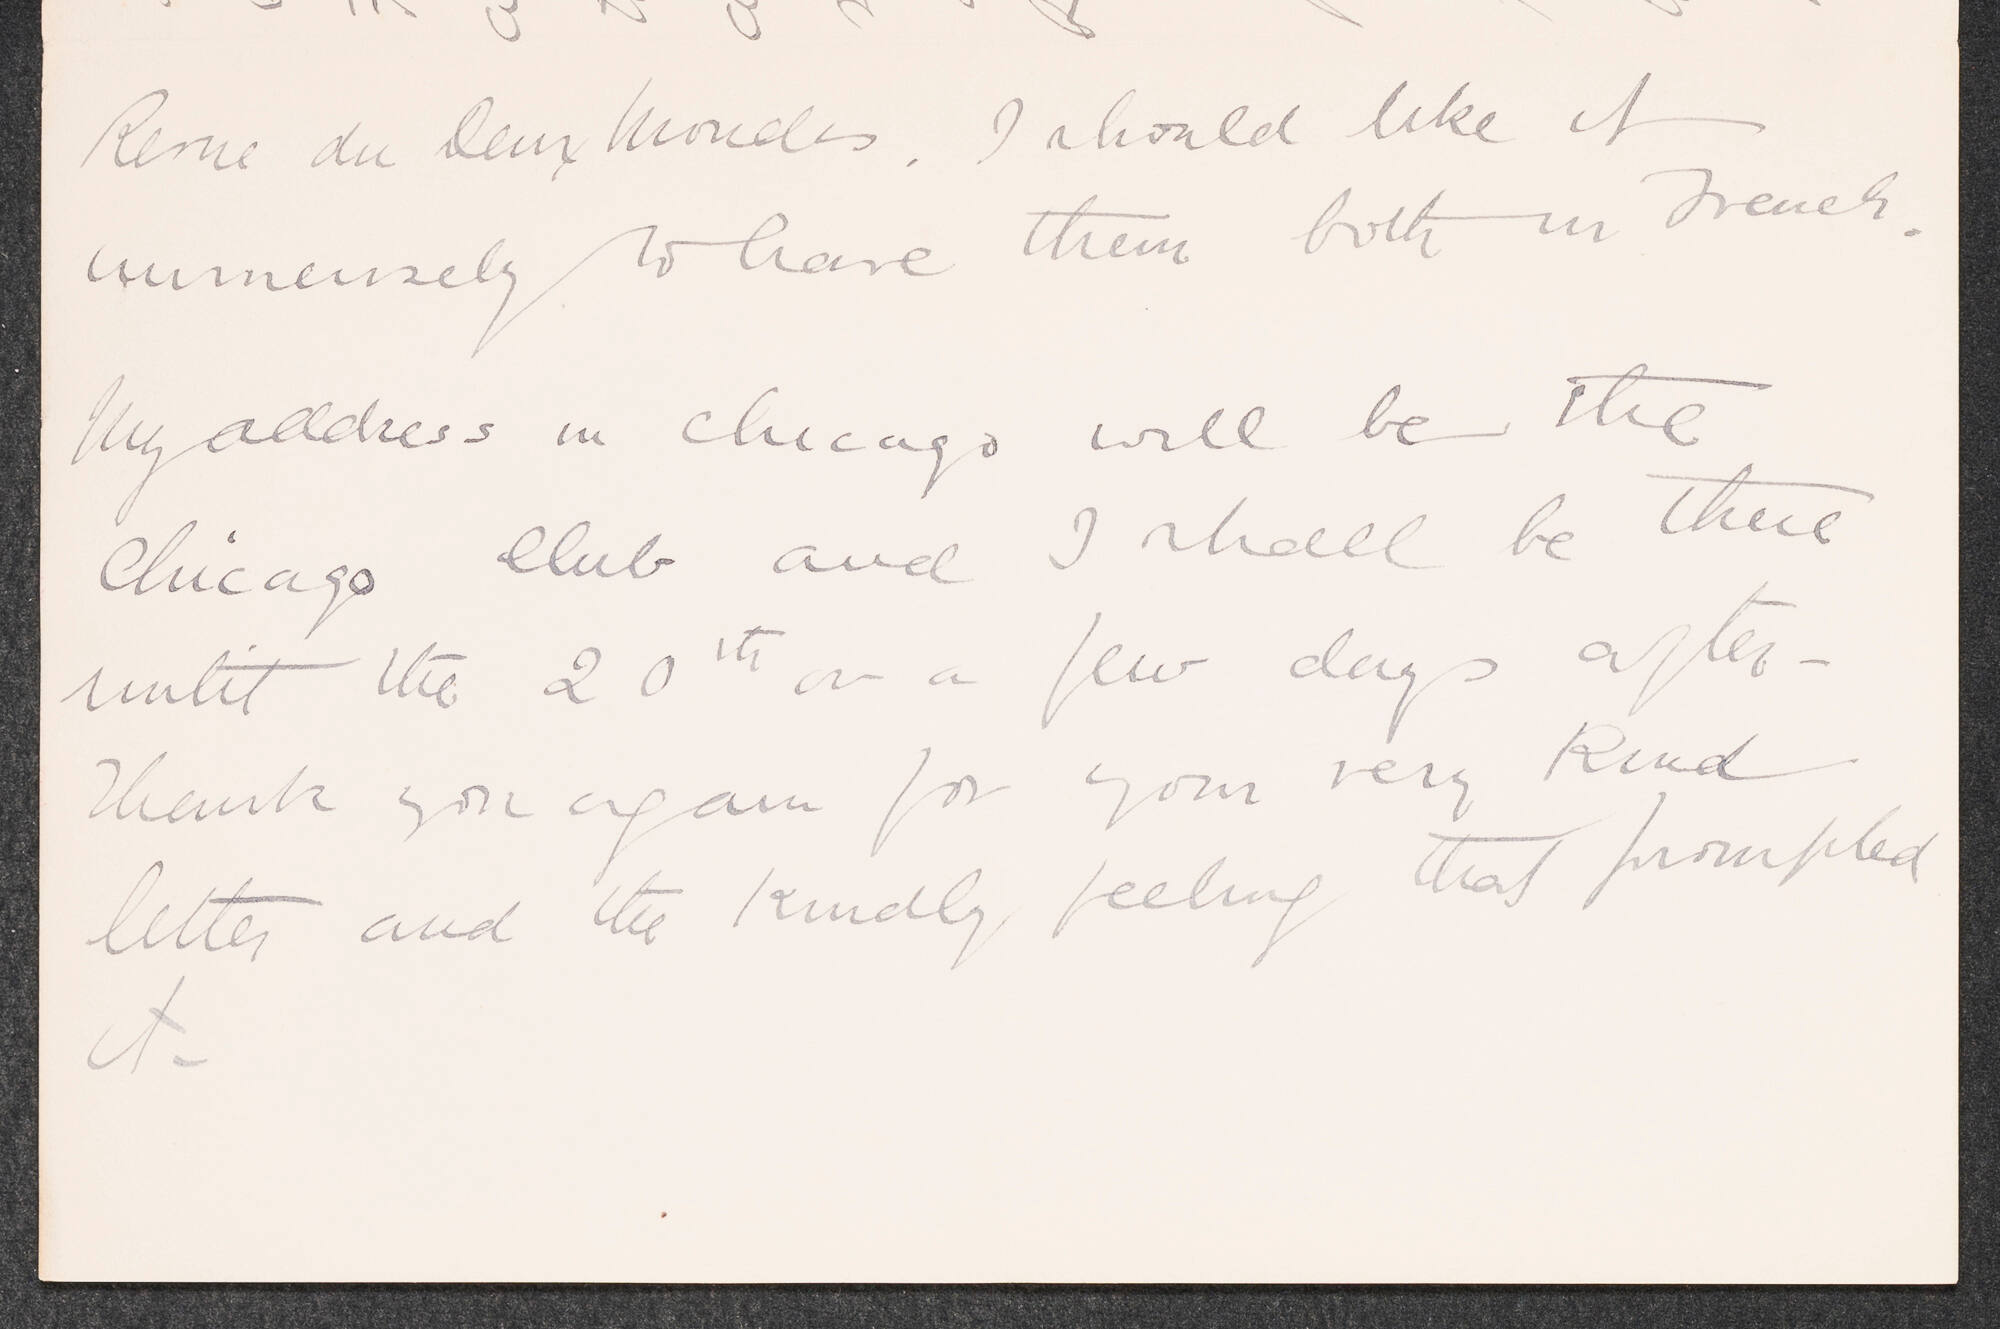 Revue du Deux Mondes. I should like it
immensely to have them both in French.
My address in Chicago will be the
Chicago Club and I shall be there
until the 20th or a few days after -
Thank you again for your very kind
letter and the kindly feeling that prompted
it -